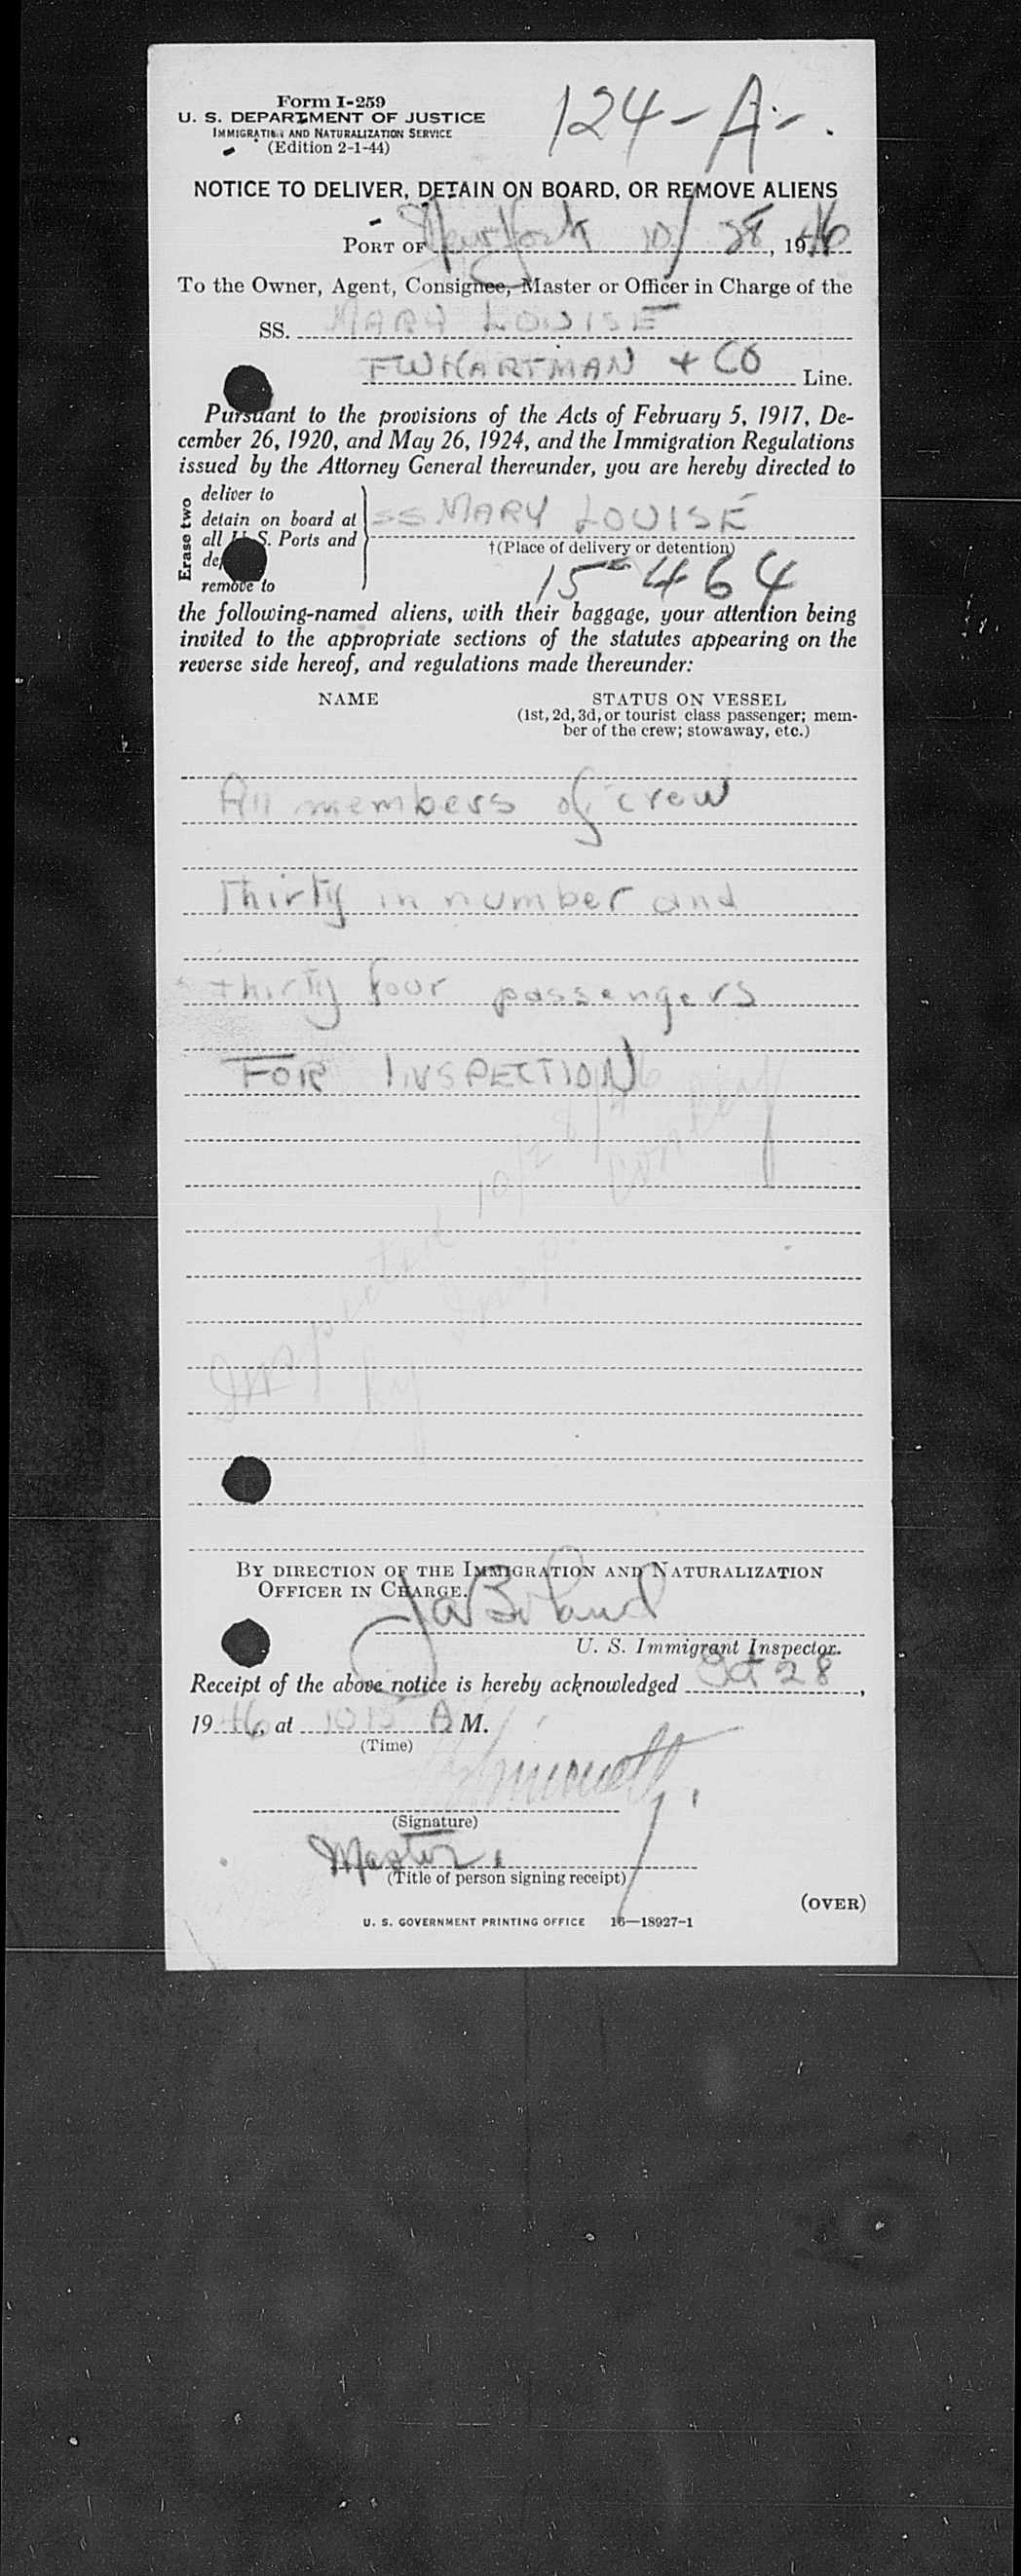 Form I-259
U. S. DEPARTMENT OF JUSTICE
IMMIGRATION AND NATURALIZATION SERVICE
(Edition 2-1-44)
124-A-.
NOTICE TO DELIVER, DETAIN ON BOARD, OR REMOVE ALIENS
PORT OF New York 10/28, 1946
To the Owner, Agent, Consignee, Master or Officer in Charge of the
SS. MARY LOUISE
FW HARTMAN + CO Line.
Pursuant to the provisions of the Acts of February 5, 1917, De-
cember 26, 1920, and May 26, 1924, and the Immigration Regulations
issued by the Attorney General thereunder, you are hereby directed to
Erase two
deliver to
detain on board at
all U. S. Ports and
remove to
SS MARY LOUISE
†(Place of delivery or detention)
15-464
the following-named aliens, with their baggage, your attention being
invited to the appropriate sections of the statutes appearing on the
reverse side hereof, and regulations made thereunder:
NAME
STATUS ON VESSEL
(1st, 2d, 3d, or tourist class passenger; mem-
ber of the crew; stowaway, etc.)
All members of crew
Thirty in number and
thirty four passengers
FOR INSPECTION
Inspected 10/28/46
by Insp.
BY DIRECTION OF THE IMMIGRATION AND NATURALIZATION
OFFICER IN CHARGE.
U. S. Immigrant Inspector.
Receipt of the above notice is hereby acknowledged Oct 28,
1946, at 1015 A M.
(Time)
(Signature)
Master.
(Title of person signing receipt)
(OVER)
U. S. GOVERNMENT PRINTING OFFICE 16—18927-1